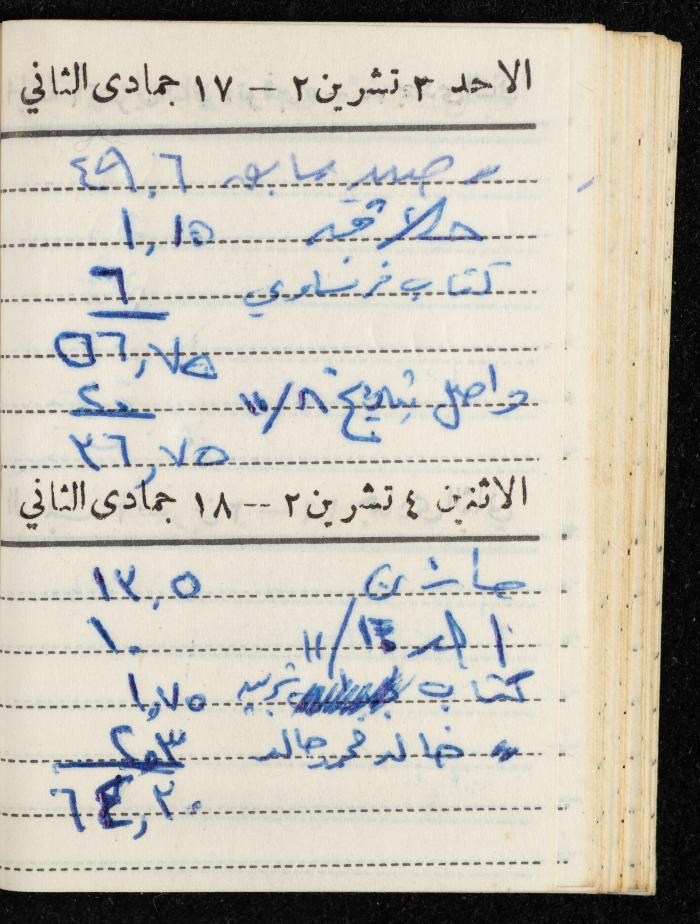 الاحد ٣ تشرين ٢ – ١٧ جمادى الثاني
رصيد سابق ٤٩,٦
حلاقه ١,١٥
كتاب فرنساوي ٦
٥٦,٧٥
واصل بتاريخ ١١/٨ ٢٠
٣٦,٧٥
الاثنين ٤ تشرين ٢ -- ١٨ جمادى الثاني
١٣,٥
١١/١٤ ١٠
كتاب ١,٧٥
خالد محمد خالد ٢,٣
٦٤,٣٠